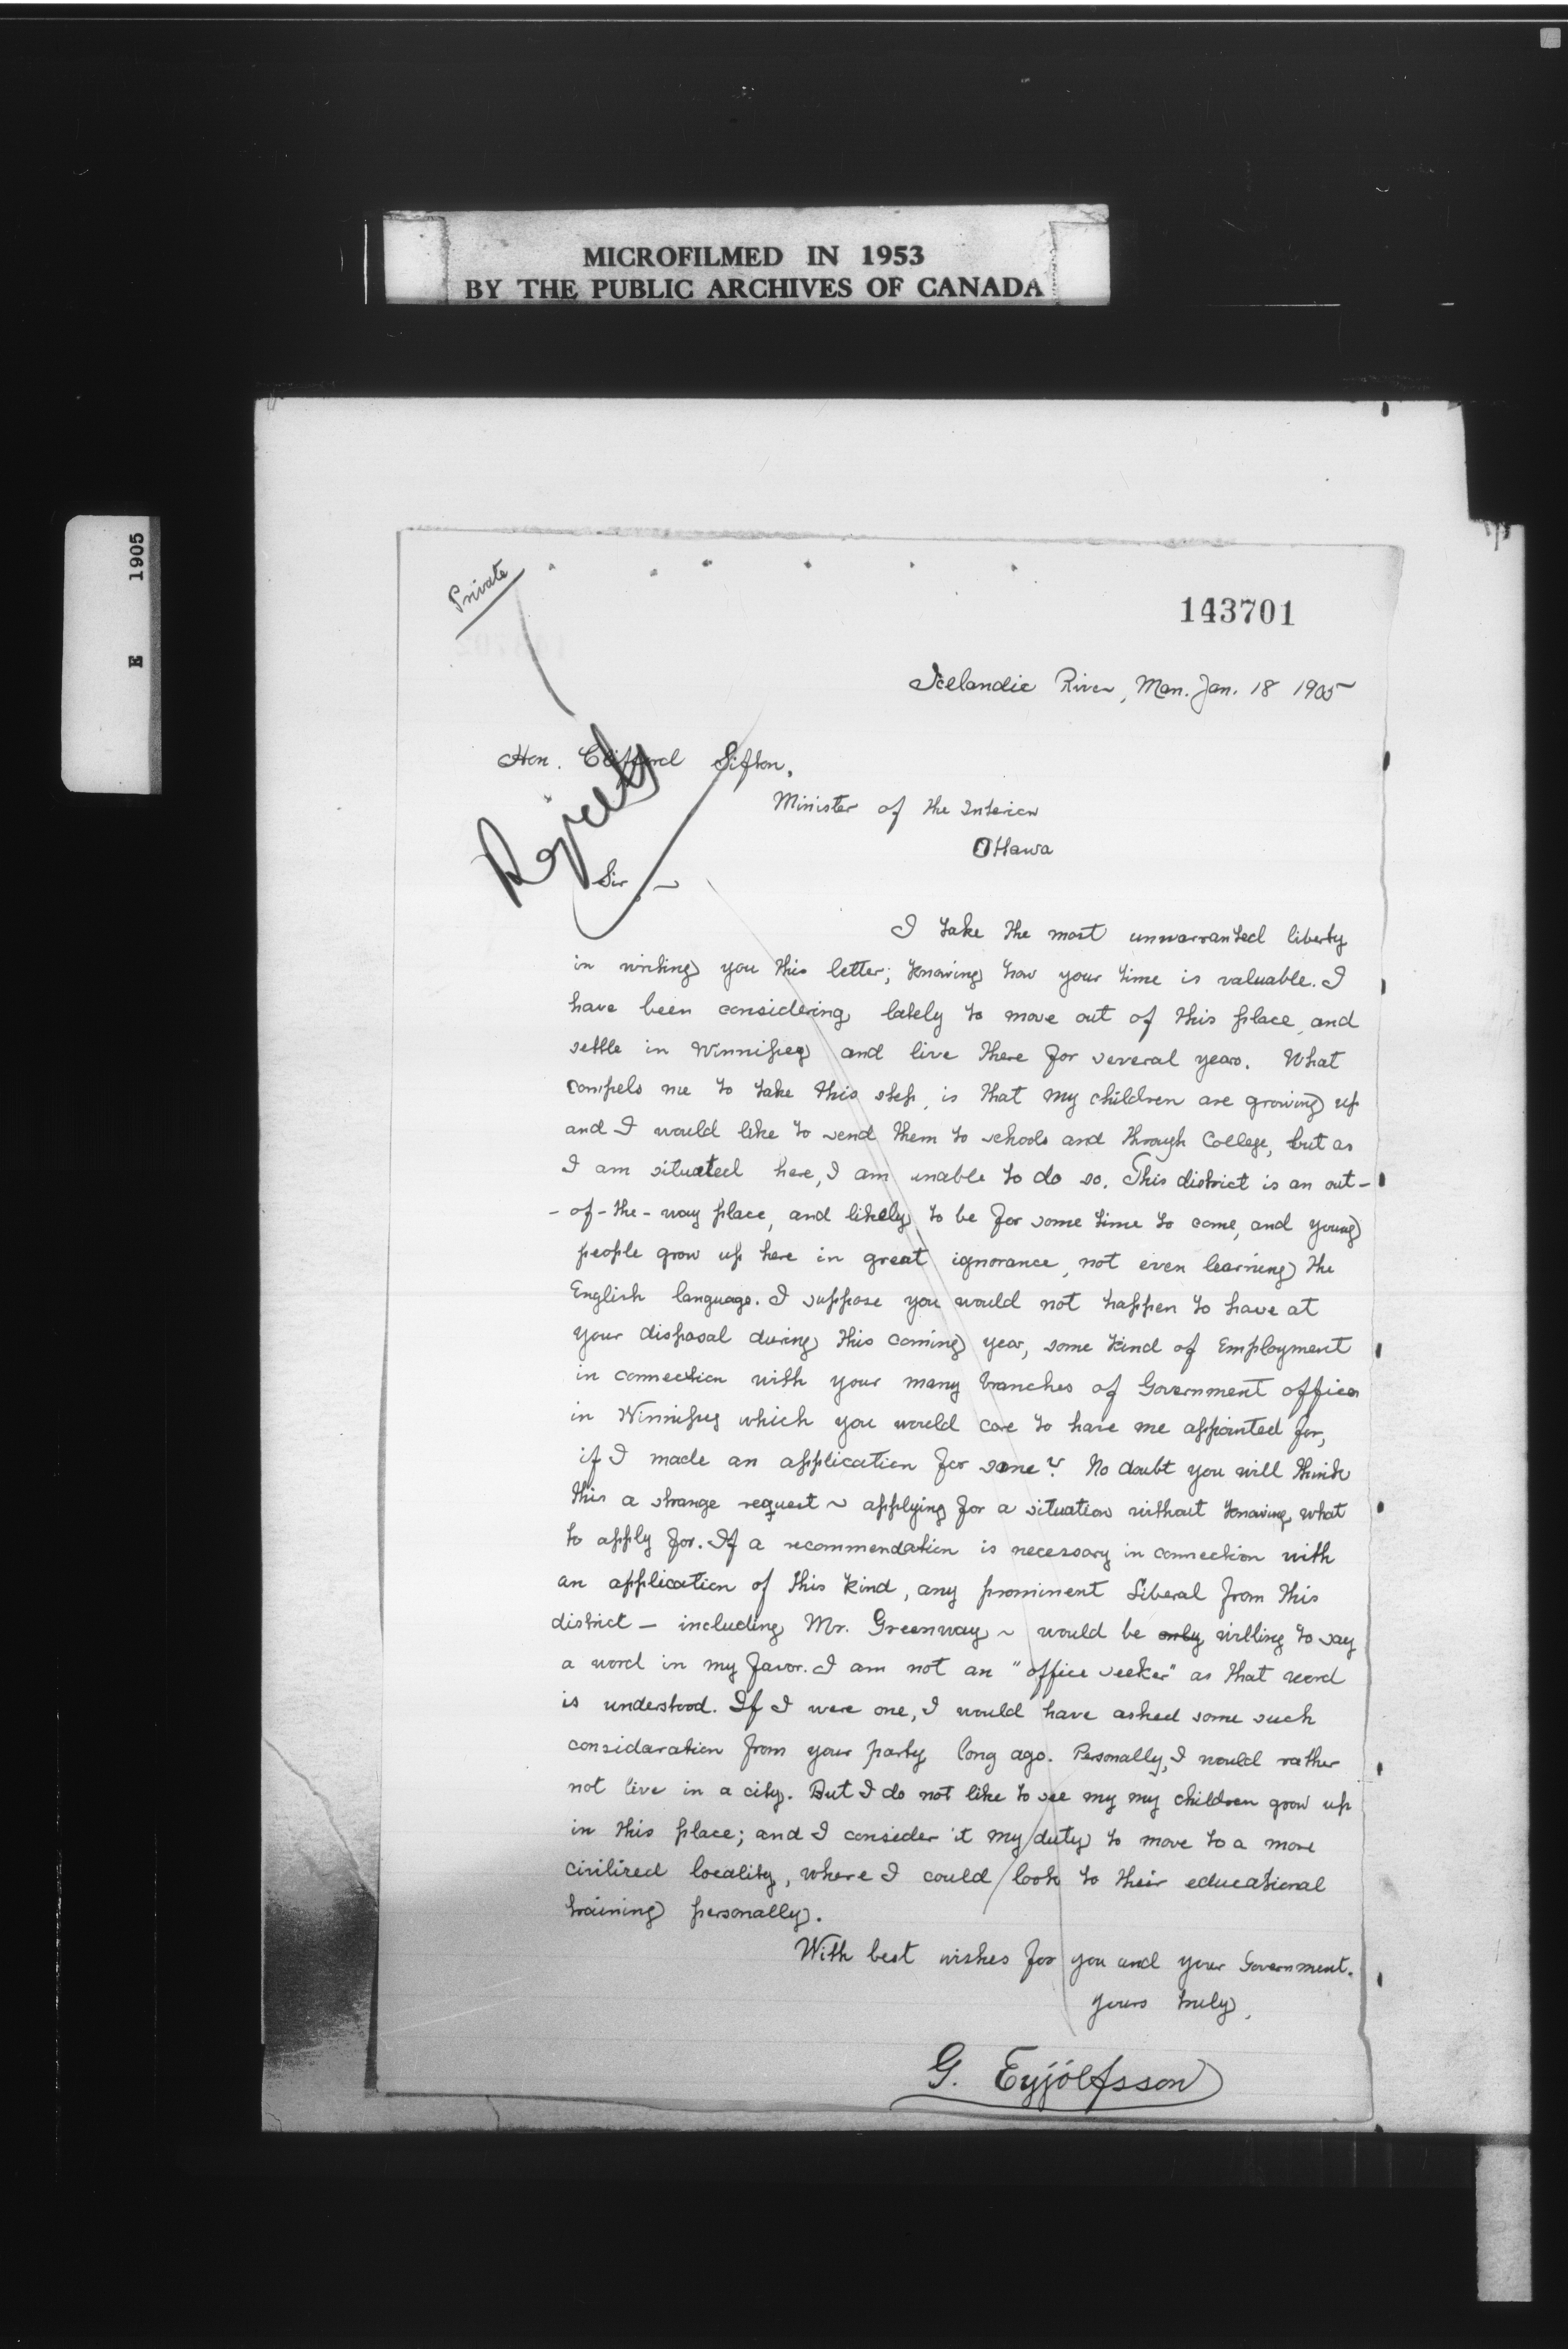 MICROFILMED IN 1953
BY THE PUBLIC ARCHIVES OF CANADA
E 1905
Private
143701
Icelandic River, Man. Jan. 18 1905
Hon. Clifford Sifton,
Minister of the Interior
Ottawa
Sir,~
I take the most unwarranted liberty
in writing you this letter; knowing how your time is valuable. I
have been considering lately to move out of this place, and
settle in Winnipeg and live there for several years. What
compels me to take this step, is that my children are growing up
and I would like to send them to schools and through College, but as
I am situated here, I am unable to do so. This district is an out-
-of-the-way place, and likely to be for some time to come, and young
people grow up here in great ignorance, not even learning the
English language. I suppose you would not happen to have at
your disposal during this coming year, some kind of Employment
in connection with your many branches of Government offices
in Winnipeg which you would care to have me appointed for,
if I made an application for same? No doubt you will think
this a strange request ~ applying for a situation without knowing what
to apply for. If a recommendation is necessary in connection with
an application of this kind, any prominent Liberal from this
district — including Mr. Greenway ~ would be only willing to say
a word in my favor. I am not an "office seeker" as that word
is understood. If I were one, I would have asked some such
consideration from your party long ago. Personally, I would rather
not live in a city. But I do not like to see my my children grow up
in this place; and I consider it my duty to move to a more
civilized locality, where I could look to their educational
training personally.
With best wishes for you and your Government.
yours truly,
G. Eyjólfsson